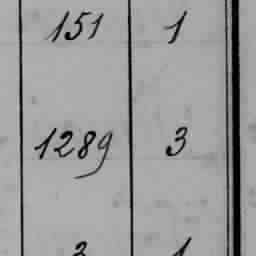 151 1
1289 3
3 1